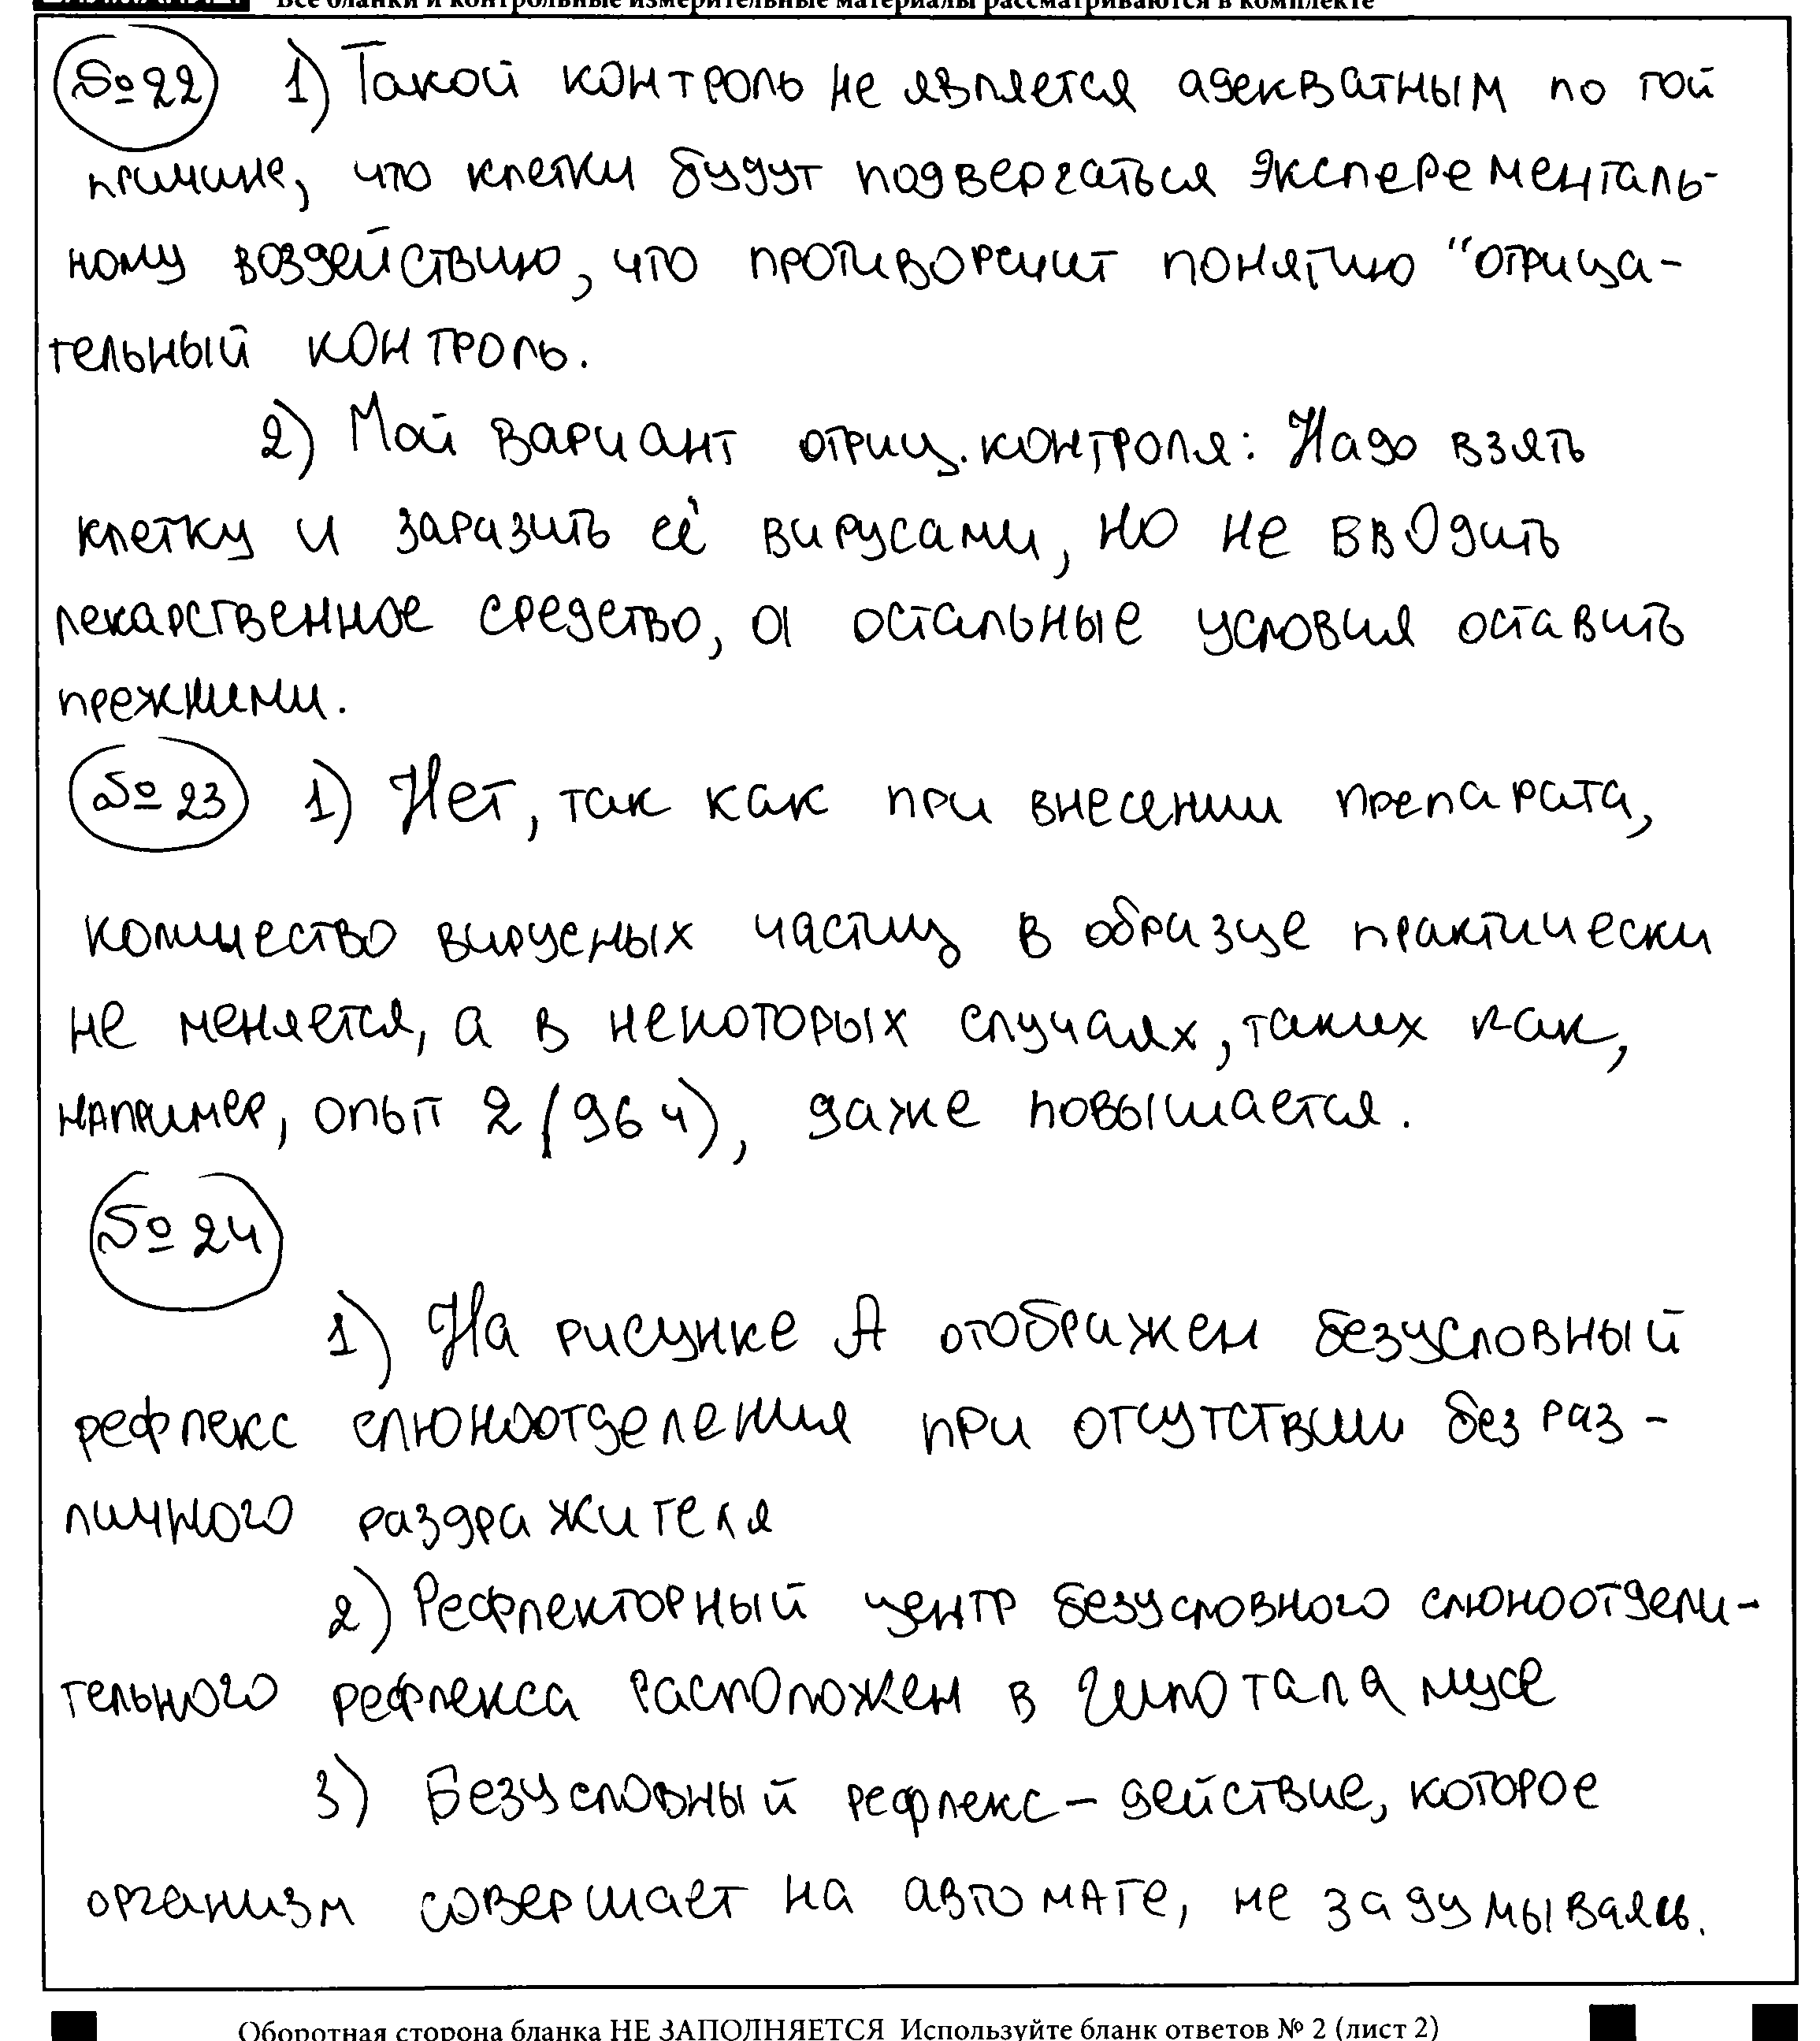 Все бланки и контрольные измерительные материалы рассматриваются в комплекте
№22 1) Такой контроль не является адекватным по той
причине, что клетки будут подвергаться эксперементаль-
ному воздействию, что противоречит понятию "отрица-
тельный контроль.
2) Мой вариант отриц. контроля: Надо взять
клетку и заразить её вирусами, но не вводить
лекарственное средство, а остальные условия оставить
прежними.
№23 1) Нет, так как при внесении препарата,
количество вирусных частиц в образце практически
не меняется, а в некоторых случаях, таких как,
например, опыт 2 (96 ч), даже повышается.
№24
1) На рисунке А отображен безусловный
рефлекс слюноотделения при отсутствии безраз-
личного раздражителя
2) Рефлекторный центр безусловного слюноотдели-
тельного рефлекса расположен в гипоталамусе
3) Безусловный рефлекс – действие, которое
организм совершает на автомате, не задумываясь.
Оборотная сторона бланка НЕ ЗАПОЛНЯЕТСЯ Используйте бланк ответов № 2 (лист 2)